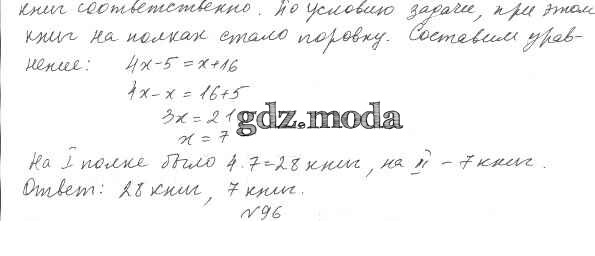 книг соответственно. По условию задачи, при этом
книг на полках стало поровну. Составим урав-
нение: 4x-5=x+16
4x-x=16+5
3x=21
gdz.moda
x=7
На I полке было 4·7=28 книг, на II - 7 книг.
Ответ: 28 книг, 7 книг.
№96